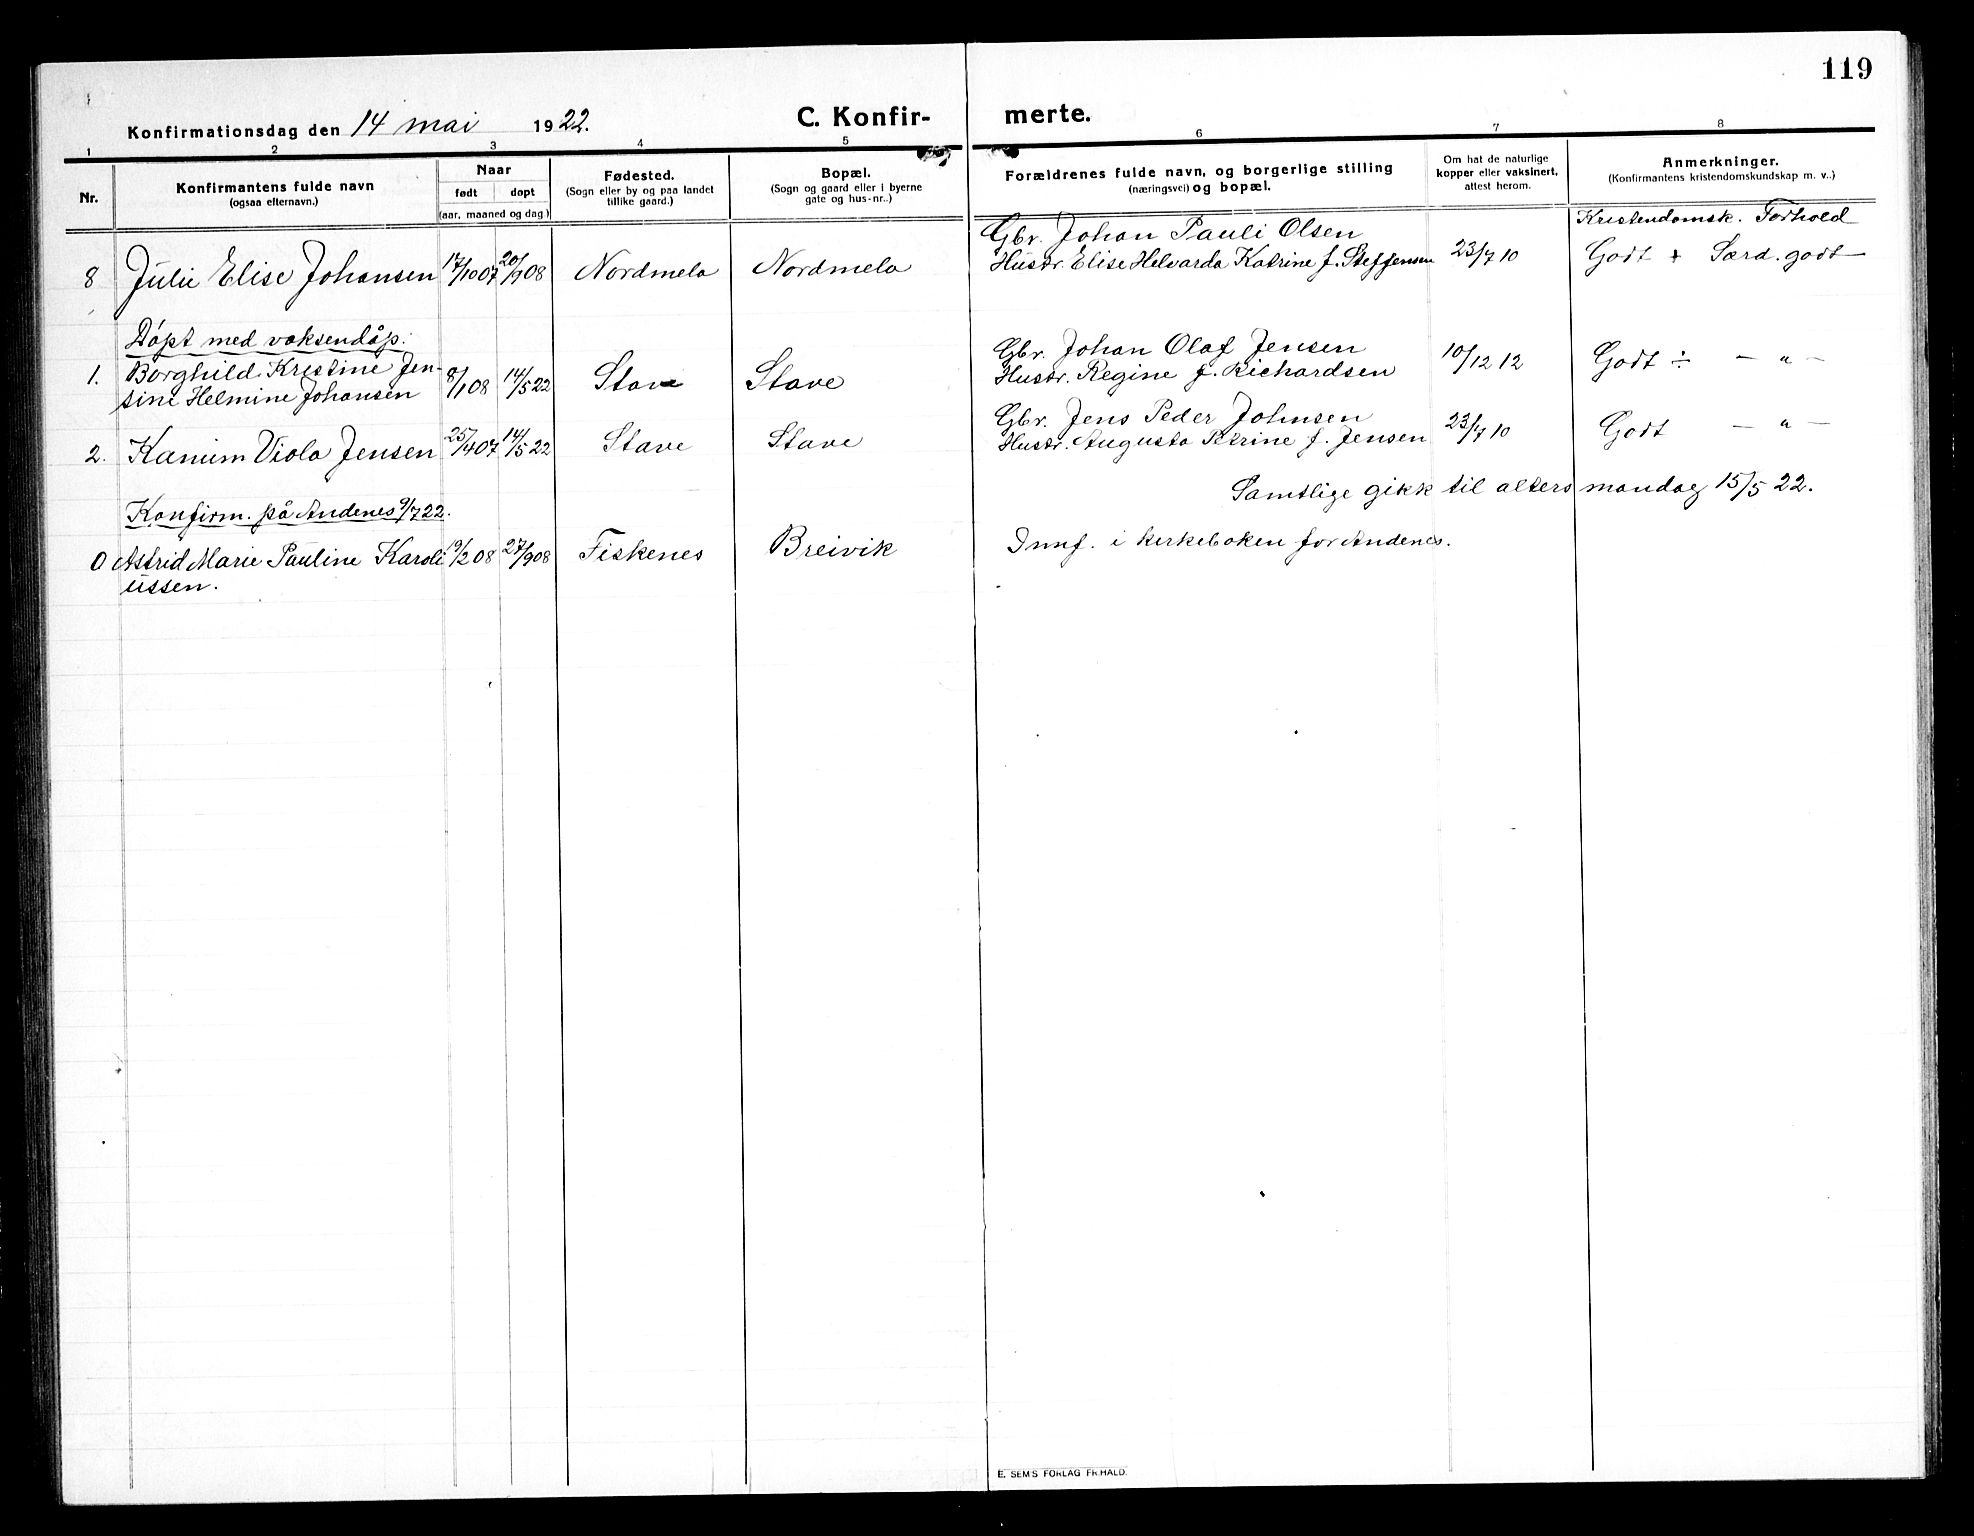 119
Konfirmationsdag den 14 mai 1922.
C. Konfirmerte.
1 2 3 4 5 6 7 8
Nr.
Konfirmantens fulde navn
(ogsaa efternavn.)
Naar
født døpt
(aar, maaned og dag)
Fødested.
(Sogn eller by og paa landet
tillike gaard.)
Bopæl.
(Sogn og gaard eller i byerne
gate og hus-nr..)
Forældrenes fulde navn, og borgerlige stilling
(næringsvei) og bopæl.
Om hat de naturlige
kopper eller vaksinert,
attest herom.
Anmerkninger.
(Konfirmantens kristendomskundskap m. v..)
Kristendomsk. Forhold
Gbr. Johan Pauli Olsen
8 Julie Elise Johansen 17/10 07 20/9 08 Nordmela Nordmela Hustr. Elise Helvarda Katrine f. Steffensen 23/7 10 Godt + Særd. godt
Døpt med voksendåp.
Gbr. Johan Olaf Jensen
1. Borghild Kristine Jen-
sine Helmine Johansen 8/1 08 14/5 22 Stave Stave Hustr. Regine f. Richardsen 10/12 12 Godt ÷ — " —
Gbr. Jens Peder Johnsen
2. Kanum Viola Jensen 25/4 07 14/5 22 Stave Stave Hustr. Augusta Petrine f. Jensen 23/7 10 Godt — " —
Samtlige gikk til alters mandag 15/5 22.
Konfirm. på Andenes 9/7 22.
0 Astrid Marie Pauline Karoli 19/2 08 27/9 08 Fiskenes Breivik Innf. i kirkeboken for Andenes.
ussen.
E. SEM'S FORLAG FR.HALD.